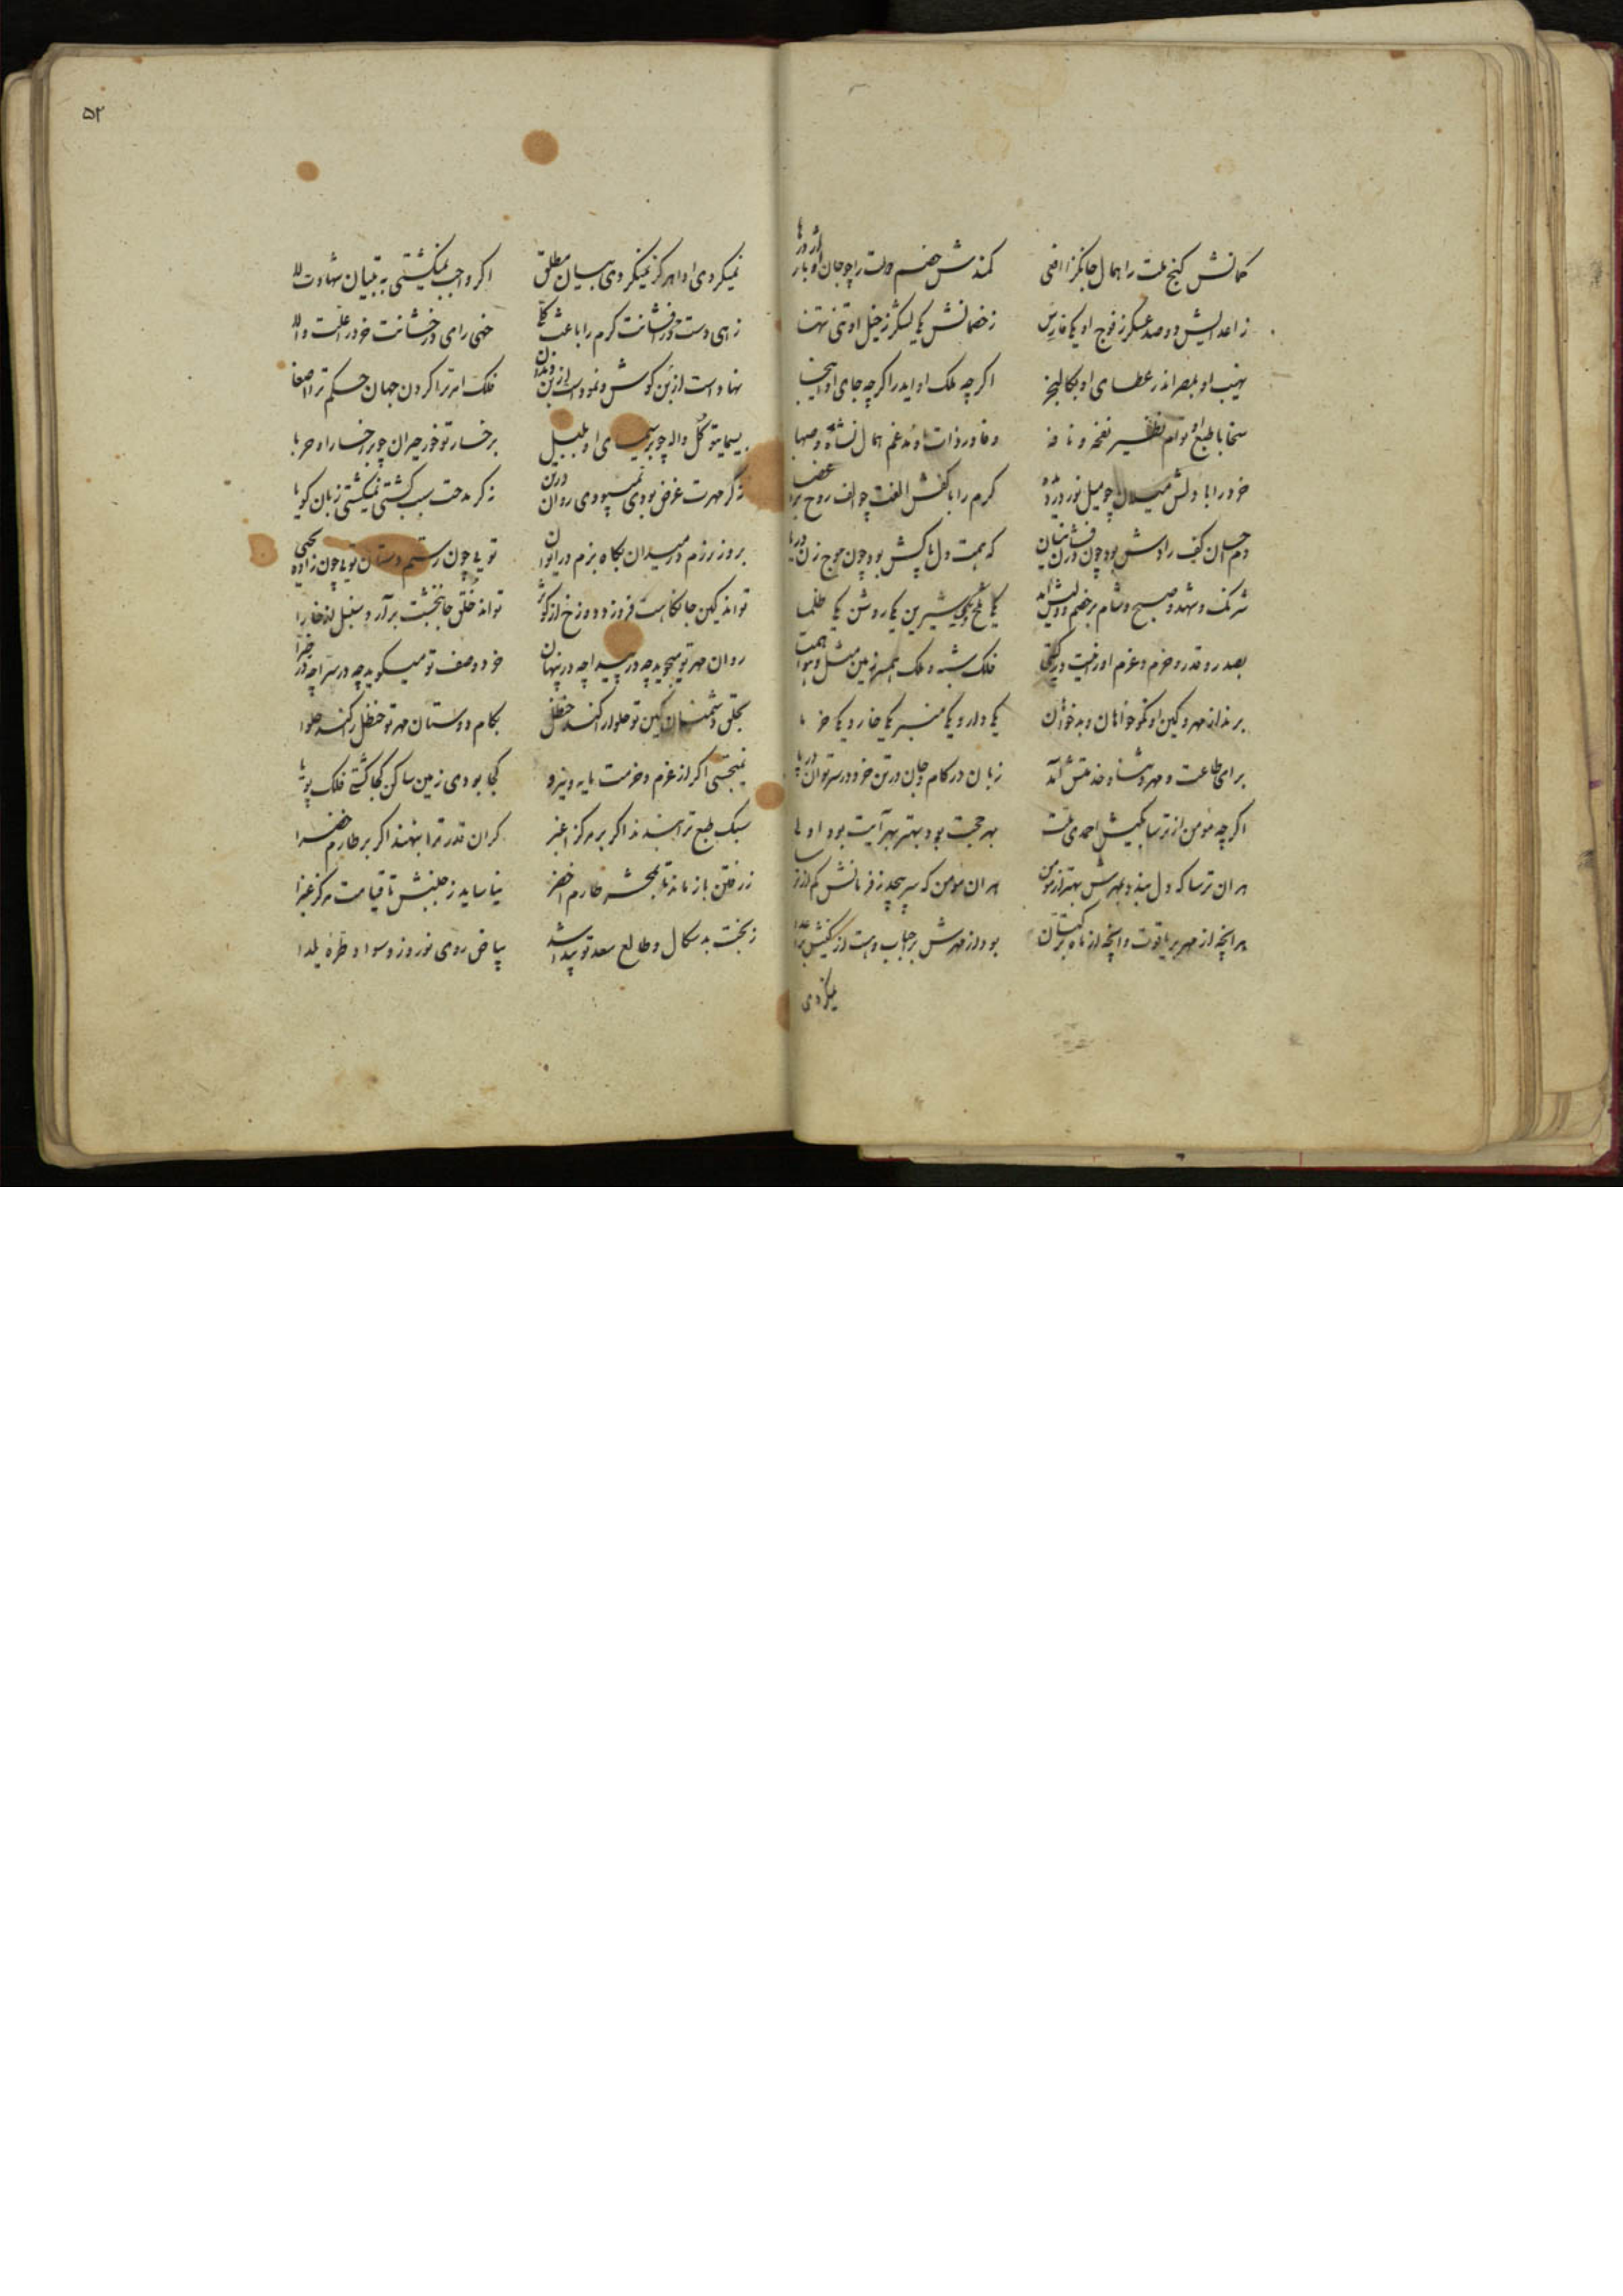 کمانش کنج ملت را همال جانگزا افعی کمندش خصم دولت را چو جان اوبار اژدرها
ز اعدایش دو صد عسکر ز فوج او یکی فارس ز خصمانش یکی لشکر ز خیل او تنی تنها
نهیب او بمصر اندر عطای او بکالنجر اگر چه ملک او ایدر اگر چه جای او اینجا
سخا با طبع او توام نظیر نفخه و نافه وفا در ذات او مدغم همال نشأه و صهبا
خرد را با دلش میلان چو میل نور در دیده کرم را با کفش الفت چو الف روح بر اعضا
دم احسان کف رادش بود چون درفشان نیسان که همت دل پاکش بود چون موج زن دریا
شرنک و شهد و صبح و شام بر خصم و ولیش آمد یکی تلخ و یکی شیرین یکی روشن یکی ظلما
بصدر و قدر و حزم و عزم او را نیست در گیتی فلک شبه و ملک همسر زمین مثل و هوا همتا
برند از مهر و کین او نکو خواهان و بدخواهان یکی دار و یکی منبر یکی خار و یکی خرما
برای طاعت و مهر و ثنا و خدمتش آمد زبان در کام و جان در تن خرد در سر توان در پا
اگر چه مومن از ترسا بکیش احمدی ملت بهر حجت بود بهتر بهر آیت بود اولی
هر ان ترسا که دل بندد بمهرش بهتر از مومن هر ان مومن که سر پیچد ز فرمانش کم از ترسا
هر انچه از مهر بر یاقوت و انچه از ماه بر کتان بود از مهرش بر احباب و هست از کینش بر اعدا
نمیکردی
نمیکردی ادا هرگز نمیکردی بیان مطلق اگر واجب نمیگشتی به تبیان شهادت لا
زهی دست درفشانت کرم را باعث کلی خهی رای درخشانت خرد را علت والا
نهادست از بن گوش و نمودست از بن دندان فلک امر ترا گردن جهان حکم ترا اصغا
بسیمای تو گل واله چو بر سیمای او بلبل برخسار تو خور حیران چو بر رخسار او حربا
نه گر مهرت غرض بودی نمیبودی روان در تن نه گر مدحت سبب گشتی نمیگشتی زبان گویا
بروز رزم در میدان بگاه بزم در ایوان تویی چون رستم دستان تویی چون زاده یحیی
تواند کین جانکاهت فروزد دوزخ از کوثر تواند خلق جانبخشت برآرد سنبل از خارا
روان مهر تو میجوید چه در پیدا چه در پنهان خرد وصف تو میگوید چه در سرا چه در ضرا
بحلق دشمنان کین تو حلوا را کند حنظل بکام دوستان مهر تو حنظل را کند حلوا
نمیجستی اگر از عزم و حزمت مایه و نیرو کجا بودی زمین ساکن کجا گشتی فلک پویا
سبک طبع ترا بنهند اگر بر مرکز اغبر گران قدر ترا بنهند اگر بر طارم خضرا
ز رفتن باز ماند تا بمحشر طارم اخضر نیاساید ز جنبش تا قیامت مرکز غبرا
ز بخت بدسگال و طالع سعد تو پیدا شد بیاض روی نوروز و سواد طره یلدا
۵۲